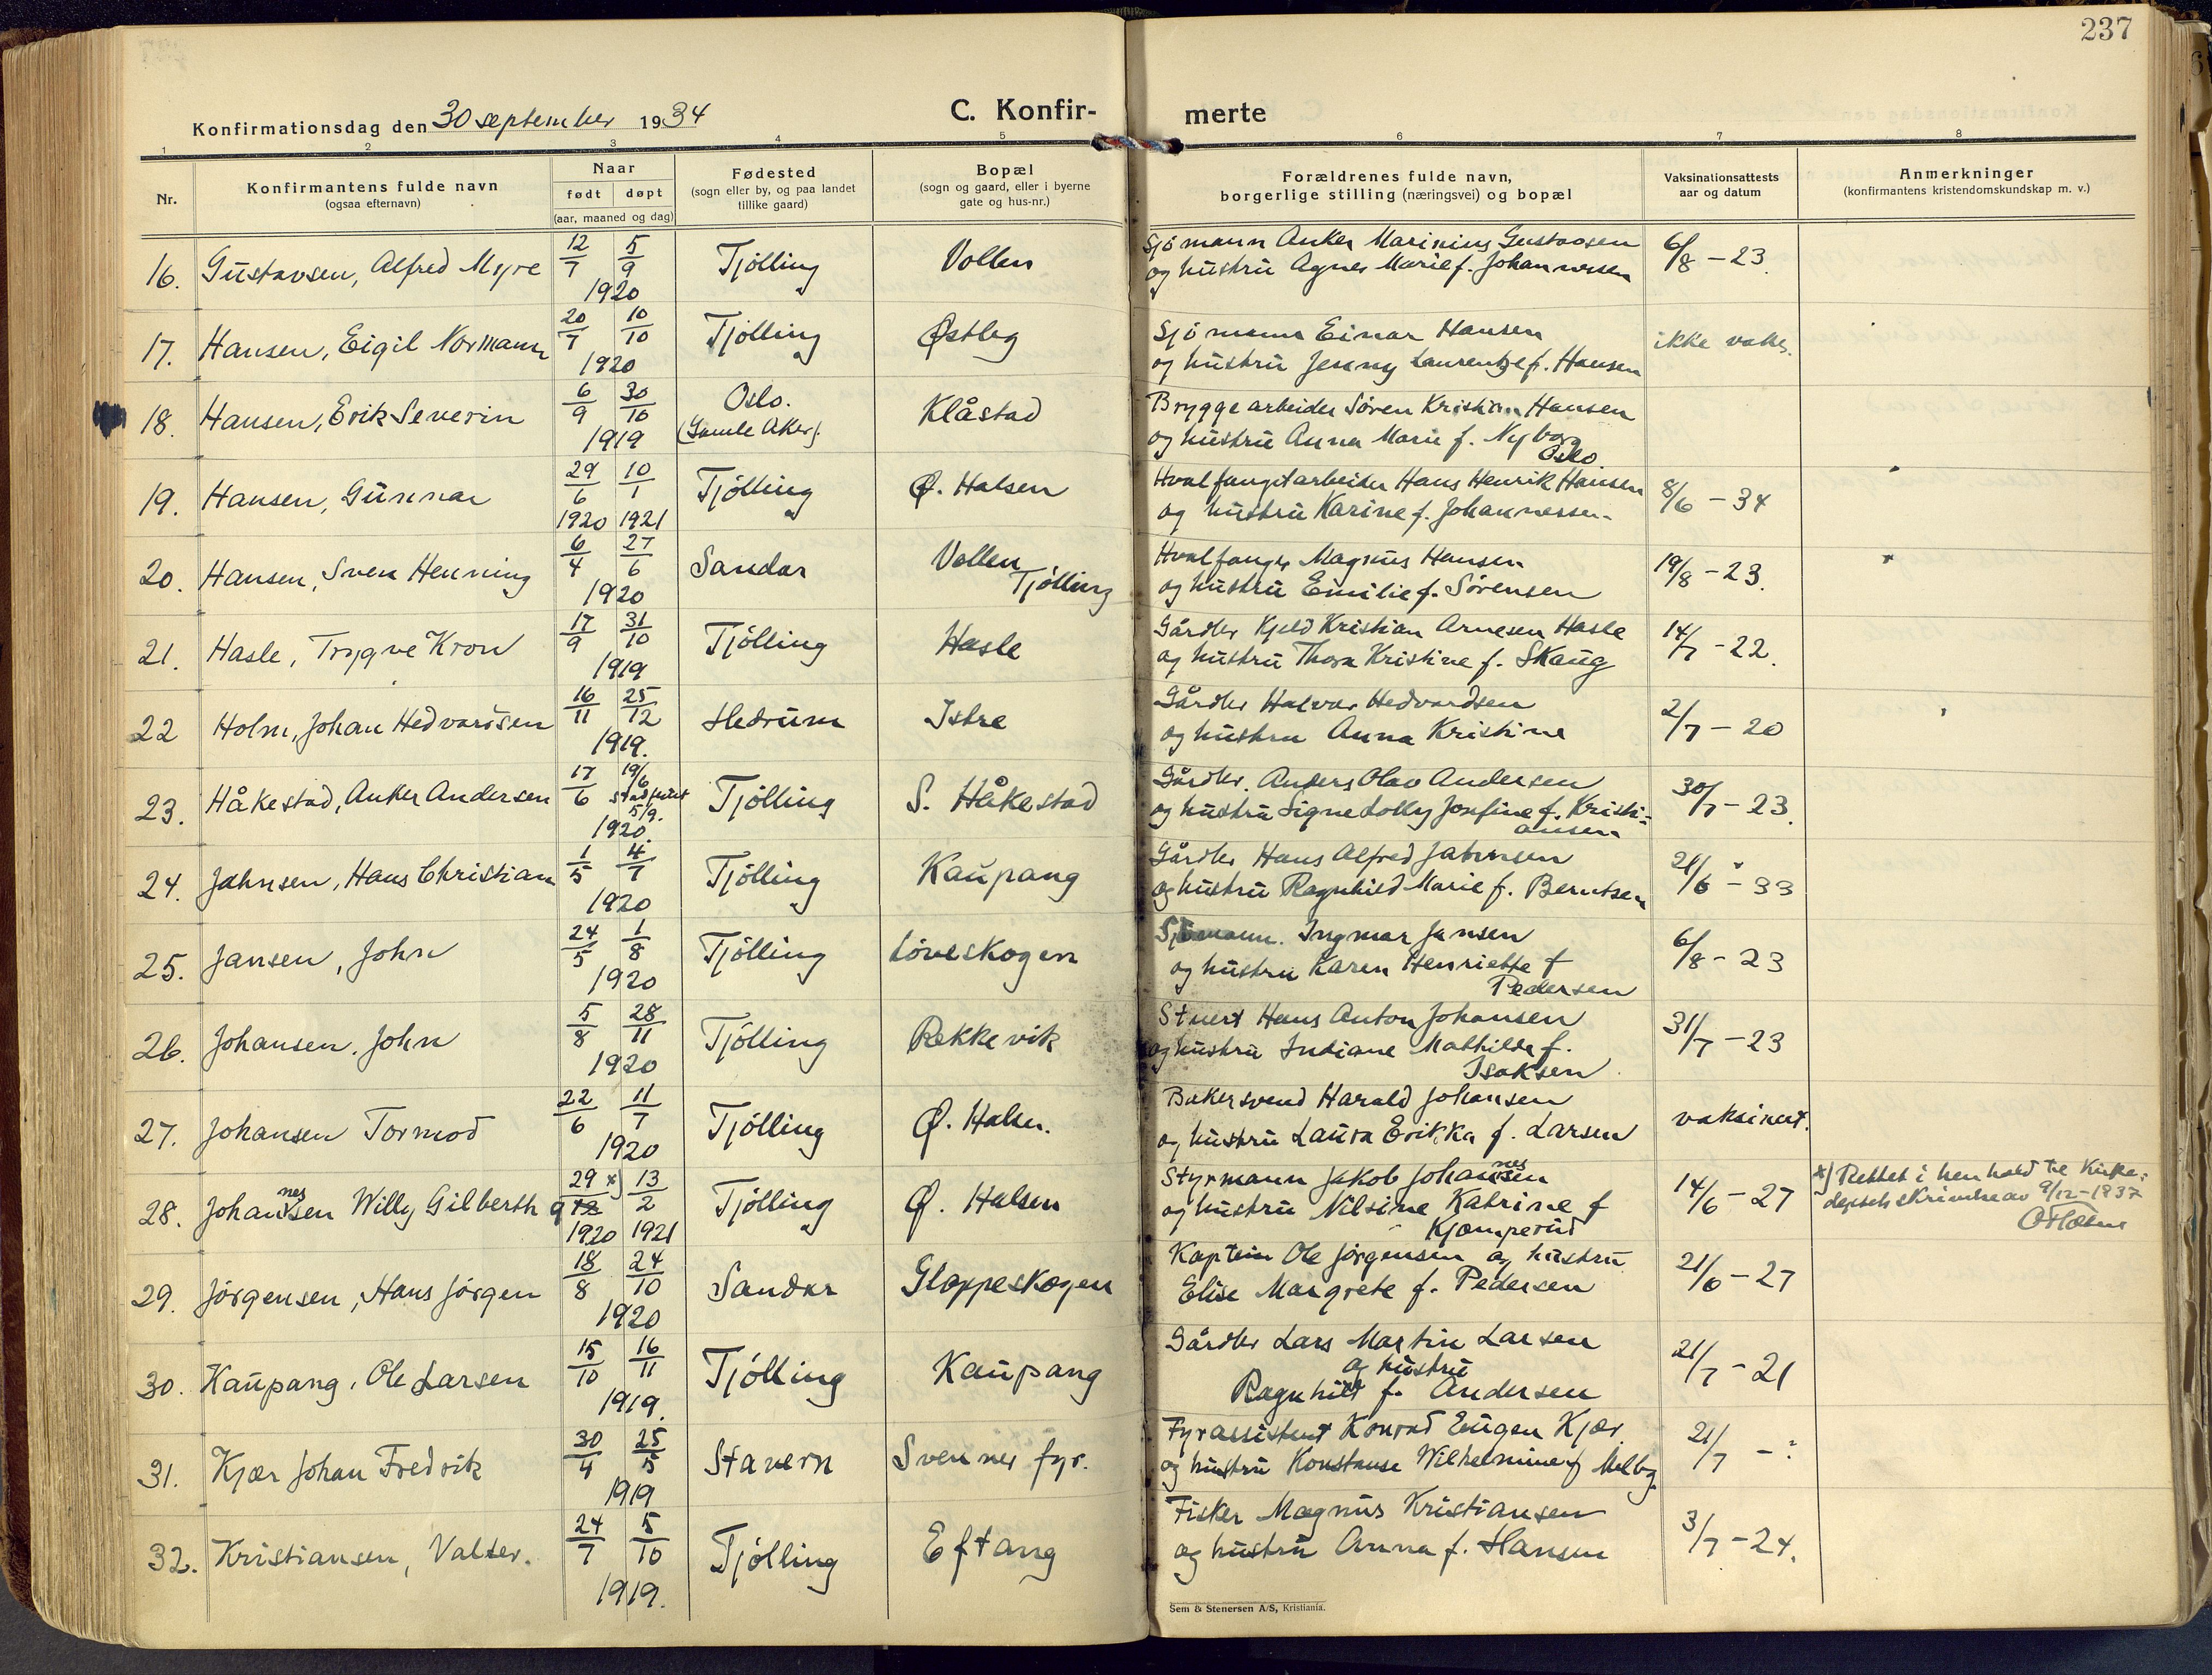 237
Konfirmationsdag den 30 september 1934
C. Konfir- merte
1 2 3 4 5 6 7 8
Nr.
Konfirmantens fulde navn
(ogsaa efternavn)
Naar
født døpt
(aar, maaned og dag)
Fødested
(sogn eller by, og paa landet
tillike gaard)
Bopæl
(sogn og gaard, eller i byerne
gate og hus-nr.)
Forældrenes fulde navn,
borgerlige stilling (næringsvei) og bopæl
Vaksinationsattests
aar og datum
Anmerkninger
(konfirmantens kristendomskundskap m. v.)
16. Gustavsen, Alfred Myre 12/7 5/9 1920 Tjølling Vollen
Sjømann Anker Marinius Gustavsen
og hustru Agnes Marie f. Johannessen
6/8 - 23.
17. Hansen, Eigil Normann 20/7 10/10 1920 Tjølling Østby
Sjømann Einar Hansen
og hustru Jenny Laurentze f. Hansen
ikke vaks.
18. Hansen, Erik Severin 6/9 30/10 1919 Oslo.
(Gamle Aker). Klåstad
Bryggearbeider Søren Kristian Hansen
og hustru Anna Marie f. Nyborg
Oslo
19. Hansen, Gunnar 29/6 1920 10/1 1921 Tjølling Ø. Halsen
Hvalfangstarbeider Hans Henrik Hansen
og hustru Karine f. Johannessen
8/6 - 34
20. Hansen, Sven Henning 6/4 27/6 1920 Sandar Vollen
Tjølling
Hvalfanger Magnus Hansen
og hustru Emilie f. Sørensen
19/8 - 23.
21. Hasle, Trygve Kron 17/9 31/10 1919 Tjølling Hasle
Gårdbr Kjeld Kristian Arnesen Hasle
og hustru Thora Kristine f. Skaug
14/7 - 22.
22 Holm, Johan Hedvardsen 16/11 25/12 1919. Hedrum Istre
Gårdbr Halvor Hedvardsen
og hustru Anna Kristine
2/7 - 20
23. Håkestad, Anker Andersen 17/6 19/6 5/9. 1920. Tjølling S. Håkestad
Gårdbr. Anders Olav Andersen
og hustru Signe Lolly Josefine f. Kristi-
ansen
30/7 - 23.
24. Jahnsen, Hans Christian 1/5 4/7 1920 Tjølling Kaupang
Gårdbr Hans Alfred Jahnsen
og hustru Ragnhild Marie f. Berntsen
21/6 - 33
25. Jansen, John 24/5 1/8 1920 Tjølling Løveskogen
Sjømann. Ingmar Jansen
og hustru Karen Henriette f
Pedersen
6/8 - 23
26. Johansen. John 5/8 28/11 1920 Tjølling Rekkevik
Stuert Hans Anton Johansen
og hustru Indiane Mathilde f.
Isaksen
31/7 - 23
27. Johansen Tormod 22/6 11/7 1920 Tjølling Ø. Halsen.
Bakersvend Harald Johansen
og hustru Laura Erikka f. Larsen
vaksinert.
28. Johannessen Willy Gilberth 29/9 x) 1920 13/2 1921 Tjølling Ø. Halsen
Styrmann Jakob Johannessen
og hustru Nilsine Katrine f
Kjæmperud
14/6 - 27
x) Rettet i henhold til Kirke-
depsets skrivelse av 9/12-1937
29. Jørgensen, Hans Jørgen 18/8 24/10 1920 Sandar Gloppeskogen
Kaptein Ole Jørgensen og hustru
Elise Margrete f. Pedersen
21/6 - 27
30. Kaupang, Ole Larsen 15/10 16/11 1919. Tjølling Kaupang
Gårdbr Lars Martin Larsen
og hustru
Ragnhild f. Andersen
21/7 - 21
31. Kjær Johan Fredrik 30/4 25/5 1919 Stavern Svenner fyr.
Fyrassistent Konrad Eugen Kjær
og hustru Konstanse Wilhelmine f Melby
21/7 - ?
32. Kristiansen, Valter. 24/7 5/10 1919. Tjølling Eftang
Fisker Magnus Kristiansen
og hustru Anna f. Hansen
3/7 - 24.
Sem & Stenersen A/S, Kristiania.